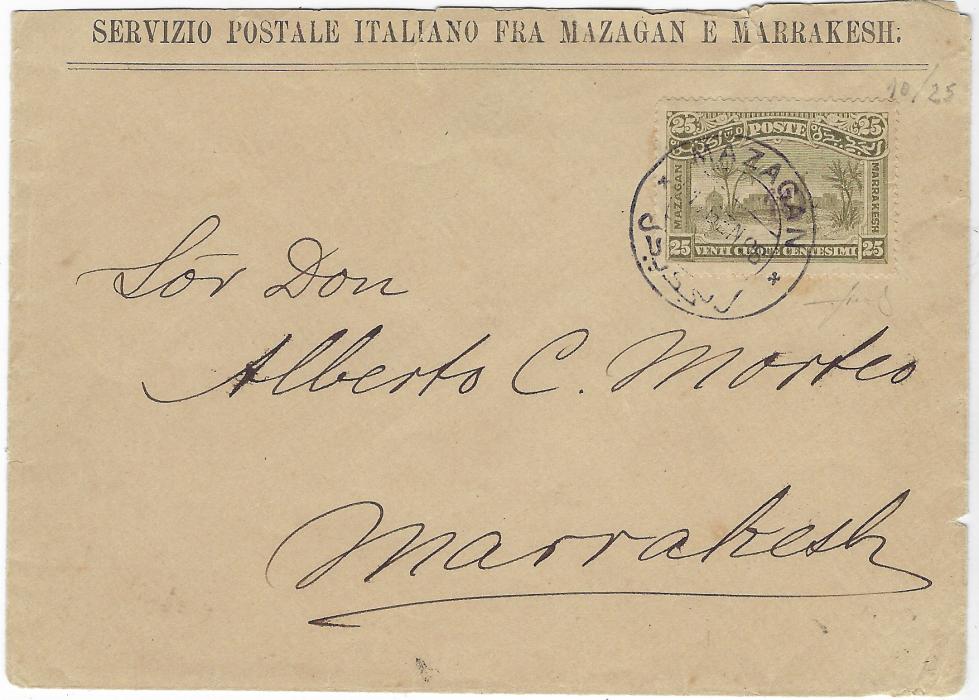 SERVIZIO POSTALE ITALIANO FRA MAZAGAN E MARRAKESH.
10/25
25 POSTE 25
MAZAGAN
MARRAKESH
25 VENTI CINQUE CENTESIMI 25
MAZAGAN
Sór Don
Alberto C. Morteo
Marrakesh